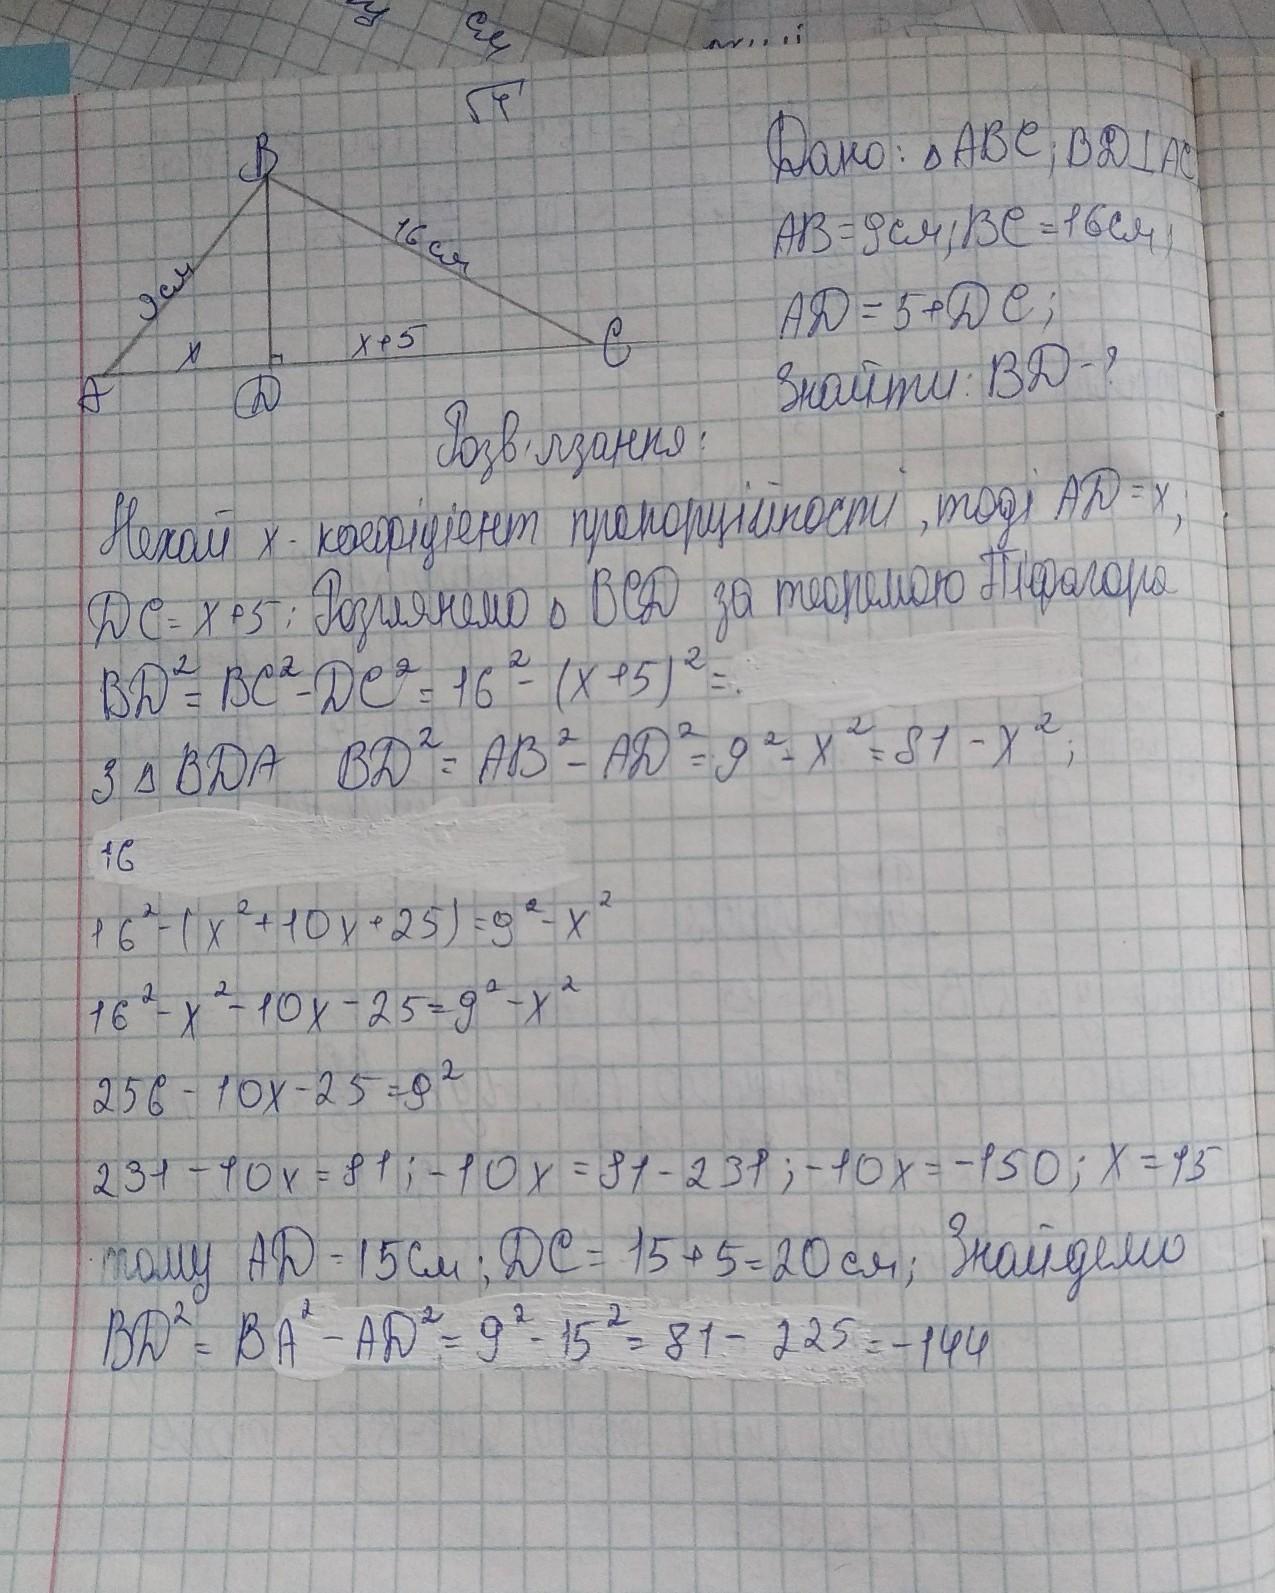 см
√4
B
Дано: △ ABC; BD⊥AC
16 см
AB=9см; BC=16см;
9см
AD=5+DC;
x
x+5
C
A
D
Знайти: BD-?
Розв'язання:
Нехай x - коефіцієнт пропорційності, тоді AD=x;
DC=x+5; Розглянемо △ BCD за теоремою Піфагора
BD²=BC²-DC²=16²-(x+5)²=
З △ BDA BD²=AB²-AD²=9²-x²=81-x²;
16
16²-(x²+10x+25)=9²-x²
16²-x²-10x-25=9²-x²
256-10x-25=9²
231-10x=81; -10x=81-231; -10x=-150; x=15
тому AD=15см; DC=15+5=20см; Знайдемо
BD²=BA²-AD²=9²-15²=81-225=-144